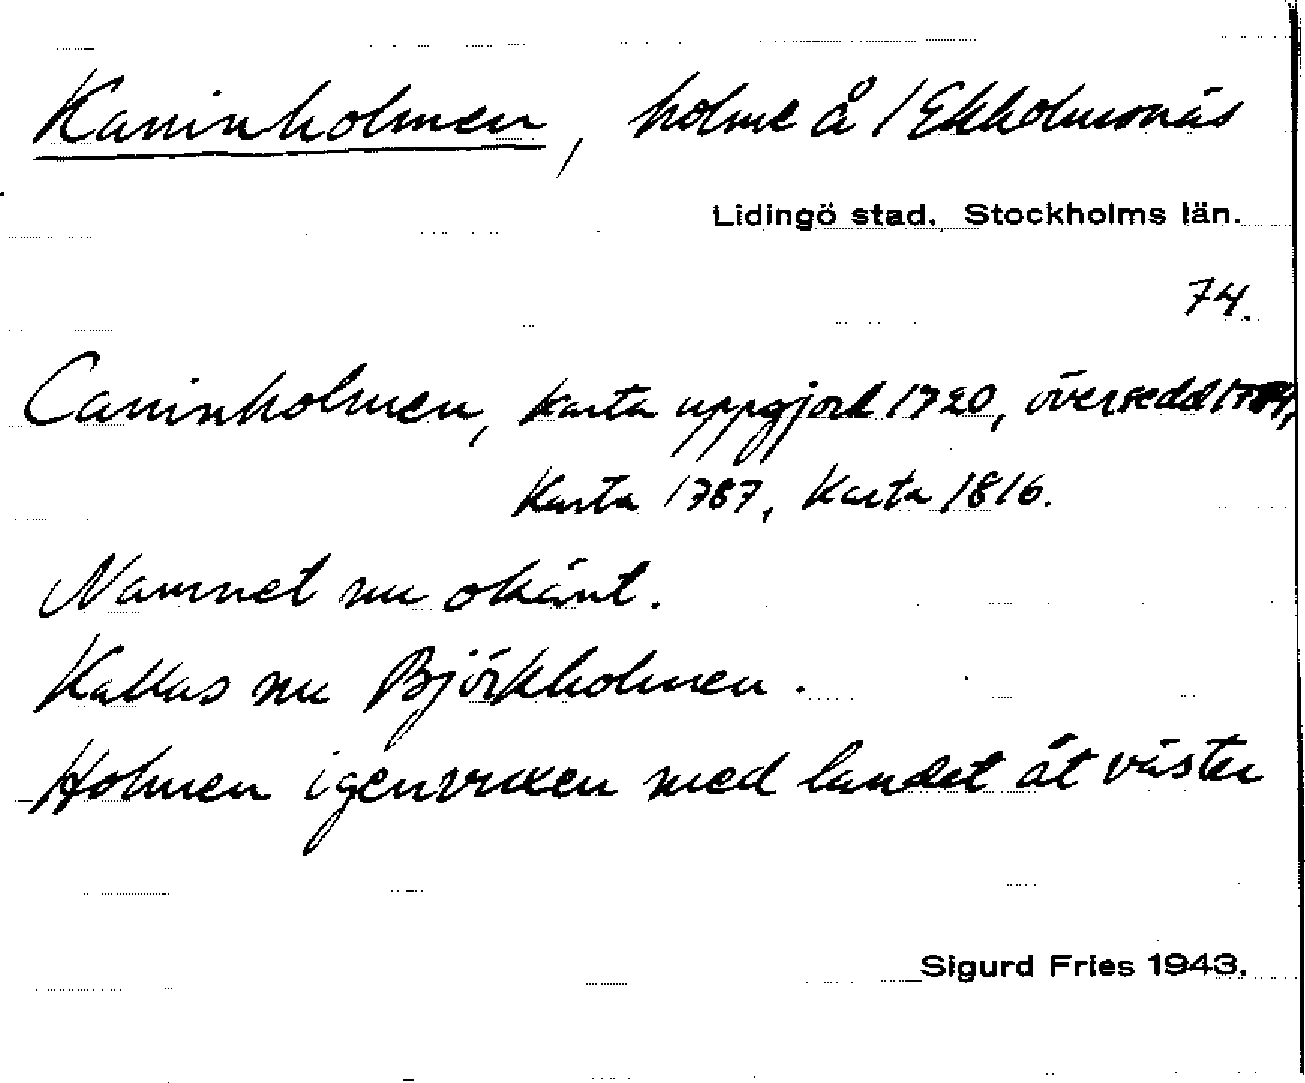 Kaninholmen, holme å / Ekholmsnäs
Lidingö stad. Stockholms län.
74.
Caninholmen, Karta uppgjord 1720, översedd
Karta 1787, Karta 1816.
Namnet nu okänt.
Kallas nu Björkholmen.
Holmen igenvuxen med landet åt väster
Sigurd Fries 1943.